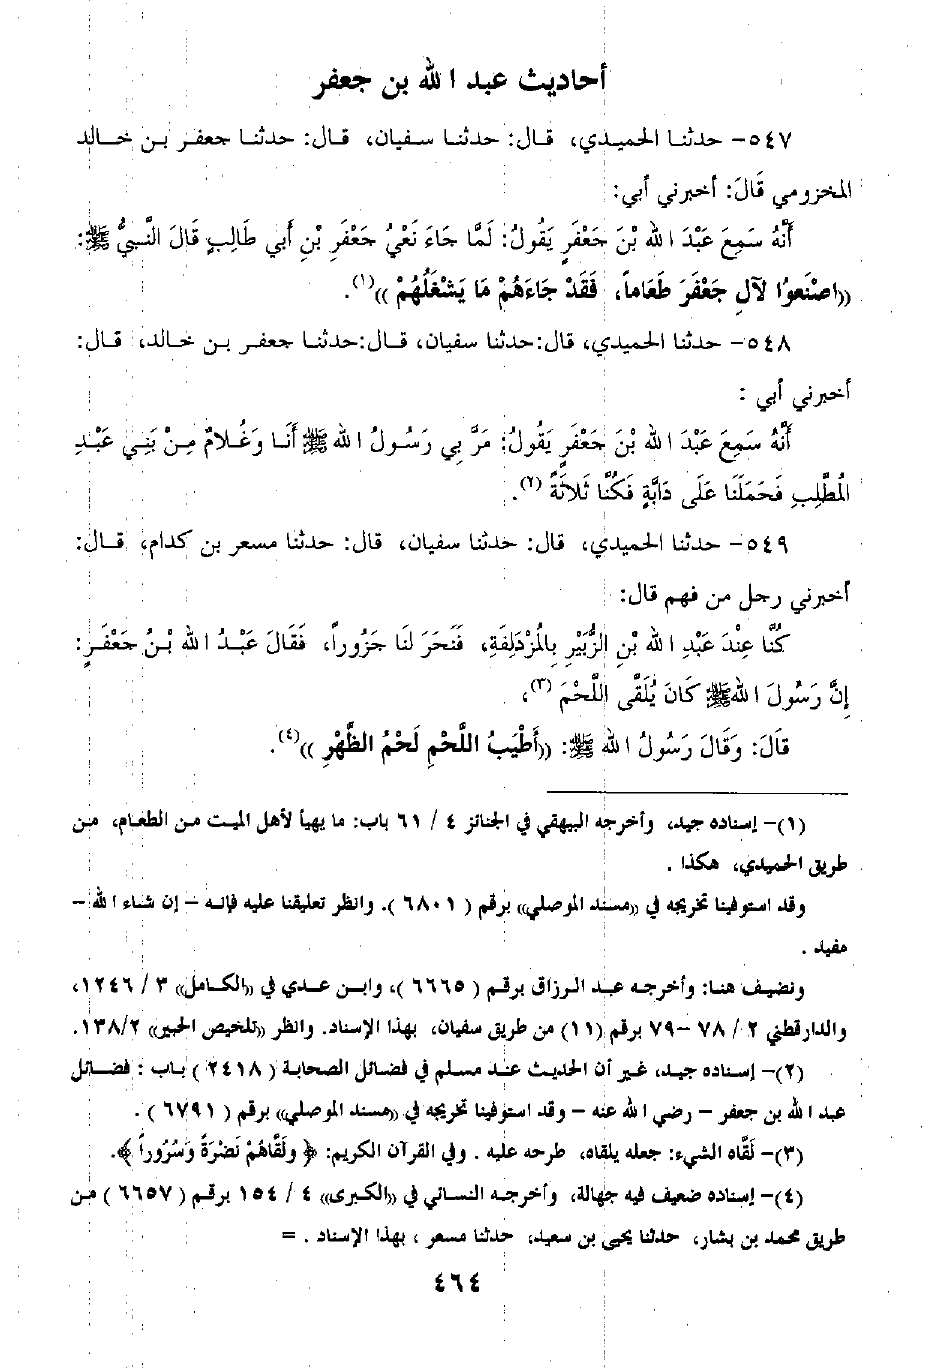 أحاديث عبد الله بن جعفر
٥٤٧- حدثنا الحميدي، قال: حدثنا سفيان، قال: حدثنا جعفر بن خالد
المخزومي قَالَ: أخبرني أبي:
أَنَّهُ سَمِعَ عَبْدَ اللهِ بْنَ جَعْفَرٍ يَقُولُ: لَمَّا جَاءَ نَعْيُ جَعْفَرِ بْنِ أَبِي طَالِبٍ قَالَ النَّبِيُّ ﷺ:
((اصْنَعُوا لآلِ جَعْفَرَ طَعَاماً، فَقَدْ جَاءَهُمْ مَا يَشْغَلُهُمْ))(١).
٥٤٨- حدثنا الحميدي، قال:حدثنا سفيان، قال:حدثنا جعفر بن خالد، قال:
أخبرني أبي :
أَنَّهُ سَمِعَ عَبْدَ اللهِ بْنَ جَعْفَرٍ يَقُولُ: مَرَّ بِي رَسُولُ اللهِ ﷺ أَنَا وَغُلامٌ مِنْ بَنِي عَبْدِ
الْمُطَّلِبِ فَحَمَلَنَا عَلَى دَابَّةٍ فَكُنَّا ثَلاثَةً (٢).
٥٤٩- حدثنا الحميدي، قال: حدثنا سفيان، قال: حدثنا مسعر بن كدام، قال:
أخبرني رجل من فهم قال:
كُنَّا عِنْدَ عَبْدِ اللهِ بْنِ الزُّبَيْرِ بِالْمُزْدَلِفَةِ، فَنَحَرَ لَنَا جَزُوراً، فَقَالَ عَبْدُ اللهِ بْنُ جَعْفَرٍ:
إِنَّ رَسُولَ اللهِ ﷺ كَانَ يُلَقَّى اللَّحْمَ (٣)،
قَالَ: وَقَالَ رَسُولُ اللهِ ﷺ: ((أَطْيَبُ اللَّحْمِ لَحْمُ الظَّهْرِ))(٤).
(١)- إسناده جيد، وأخرجه البيهقي في الجنائز ٤ / ٦١ باب: ما يهيأ لأهل الميت من الطعام، من
طريق الحميدي، هكذا .
وقد استوفينا تخريجه في ((مسند الموصلي)) برقم ( ٦٨٠١ ). وانظر تعليقنا عليه فإنه – إن شاء الله –
مفيد .
ونضيف هنا: وأخرجه عبد الرزاق برقم ( ٦٦٦٥ )، وابن عدي في ((الكامل)) ٣ / ١٢٤٦،
والدارقطني ٢ / ٧٨ –٧٩ برقم (١١) من طريق سفيان، بهذا الإسناد. وانظر ((تلخيص الحبير)) ١٣٨/٢.
(٢)- إسناده جيد، غير أن الحديث عند مسلم في فضائل الصحابة ( ٢٤١٨ ) باب : فضائل
عبد الله بن جعفر – رضي الله عنه – وقد استوفينا تخريجه في ((مسند الموصلي)) برقم ( ٦٧٩١ ) .
(٣)- لَقَّاه الشيء: جعله يلقاه، طرحه عليه . وفي القرآن الكريم: ﴿ ولَقَّاهُمْ نَضْرَةً وَسُرُوراً ﴾.
(٤)- إسناده ضعيف فيه جهالة، وأخرجه النسائي في ((الكبرى)) ٤ / ١٥٤ برقم ( ٦٦٥٧ ) من
طريق محمد بن بشار، حدثنا يحيى بن سعيد، حدثنا مسعر ، بهذا الإسناد . =
٤٦٤